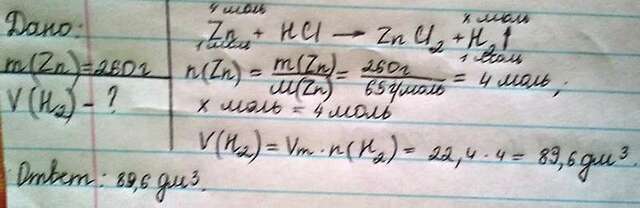 Дано:
4 моль x моль
Zn + HCl → ZnCl₂ + H₂↑
1 моль 1 моль
m(Zn)=260г
n(Zn) = m(Zn)/M(Zn) = 260г/65г/моль = 4 моль;
V(H₂) - ?
x моль = 4 моль
V(H₂) = Vm · n(H₂) = 22,4 · 4 = 89,6 дм³
Ответ: 89,6 дм³.